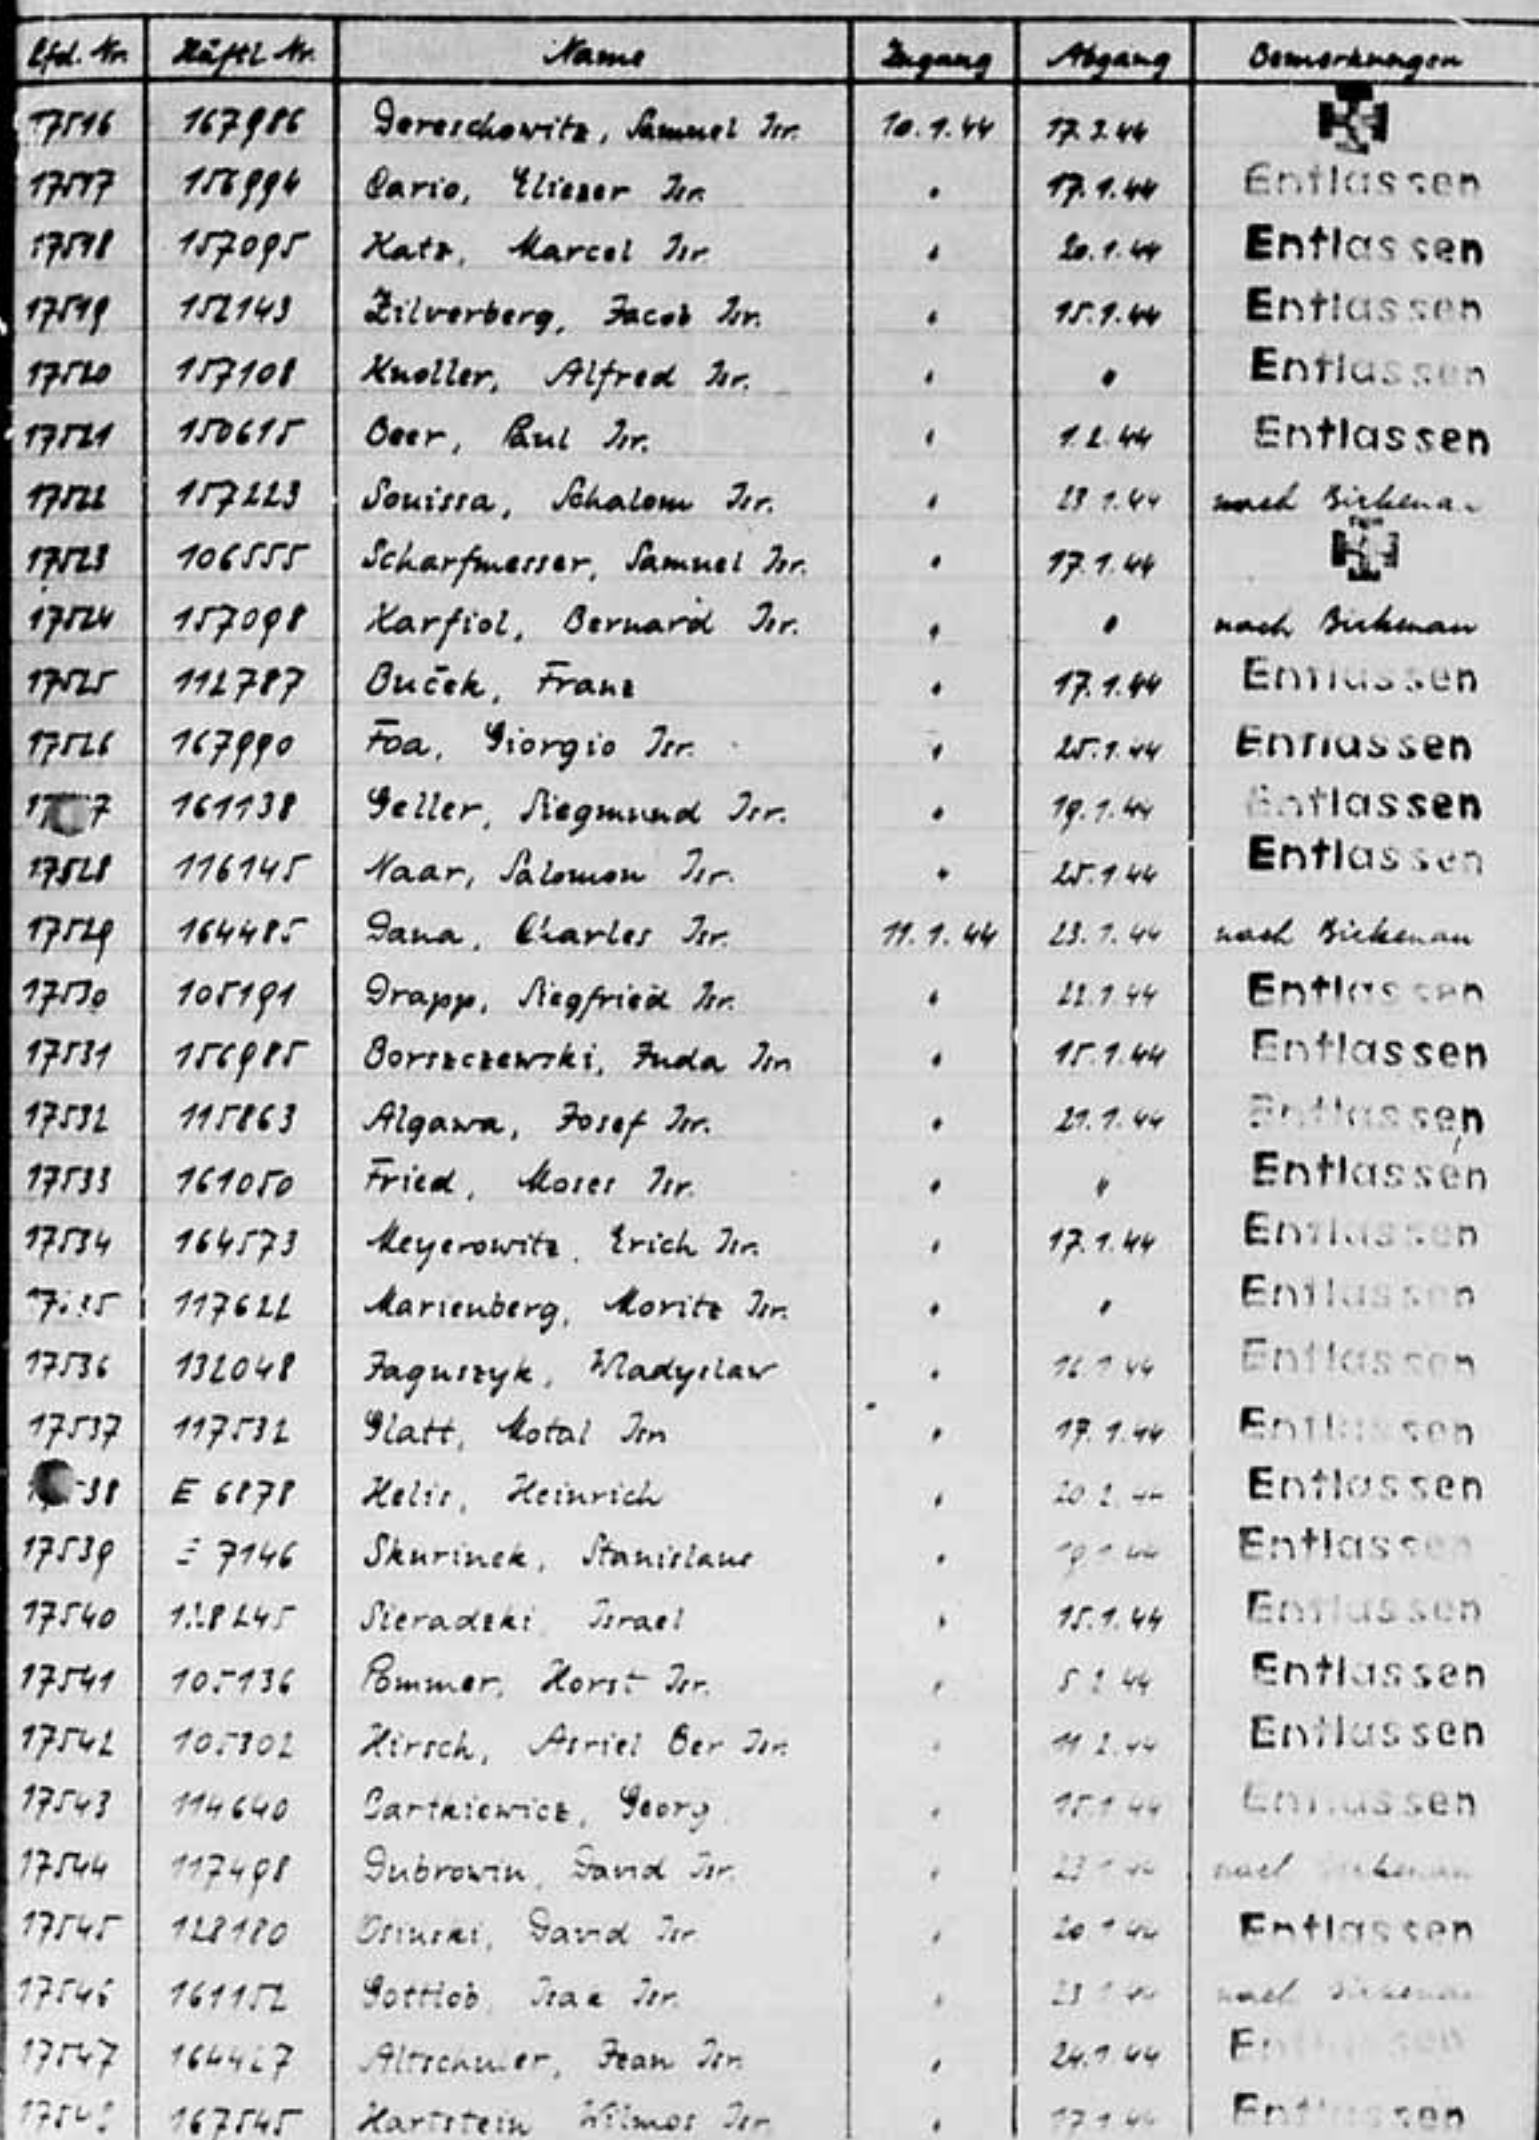 Lfd. Nr. Häftl. Nr. Name Zugang Abgang Bemerkungen
17516 167986 Dereschowitz, Samuel Isr. 10.1.44 17.3.44
17517 156994 Cario, Eliezer Isr. " 17.1.44 Entlassen
17518 157095 Katz, Marcel Isr. " 20.1.44 Entlassen
17519 152143 Zilverberg, Jacob Isr. " 15.1.44 Entlassen
17520 157108 Knoller, Alfred Isr. " " Entlassen
17521 150615 Beer, Paul Isr. " 1.2.44 Entlassen
17522 157223 Souissa, Schalom Isr. " 23.1.44 nach Birkenau
17523 106555 Scharfmesser, Samuel Isr. " 17.1.44
17524 157098 Karfiol, Bernard Isr. " " nach Birkenau
17525 112787 Buček, Franz " 17.1.44 Entlassen
17526 167990 Foa, Giorgio Isr. " 25.1.44 Entlassen
161138 Geller, Siegmund Isr. " 19.1.44 Entlassen
17528 116145 Naar, Salomon Isr. " 25.1.44 Entlassen
17529 164485 Dana, Charles Isr. 11.1.44 23.1.44 nach Birkenau
17530 105191 Drapp, Siegfried Isr. " 22.1.44 Entlassen
17531 156985 Borszczewski, Juda Isr. " 15.1.44 Entlassen
17532 115863 Algawa, Josef Isr. " 21.1.44 Entlassen
17533 161050 Fried, Moses Isr. " " Entlassen
17534 164573 Meyerowitz, Erich Isr. " 17.1.44 Entlassen
117622 Marienberg, Moritz Isr. " " Entlassen
17536 132048 Jaguszyk, Wladyslaw " 16.1.44 Entlassen
17537 117532 Glatt, Motal Isr. " 17.1.44 Entlassen
E 6878 Helis, Heinrich " Entlassen
17539 E 7146 Skurinek, Stanislaus " 19.1.44 Entlassen
17540 Sieradzki Israel " 15.1.44 Entlassen
17541 105136 Pommer, Horst Isr. " 5.2.44 Entlassen
17542 105302 Hirsch, Asriel Ber Isr. " 11.2.44 Entlassen
17543 114640 Bartkiewicz, Georg " 15.1.44 Entlassen
17544 117498 Dubrowin, David Isr. " 23.1.44 nach Birkenau
17545 128180 Osinski, David Isr. " 20.1.44 Entlassen
17546 161152 Gottlob, Isak Isr. " 23.1.44 nach Birkenau
17547 164427 Altschuler, Jean Isr. " 24.1.44 Entlassen
167545 Hartstein Wilmos Isr. " 17.1.44 Entlassen